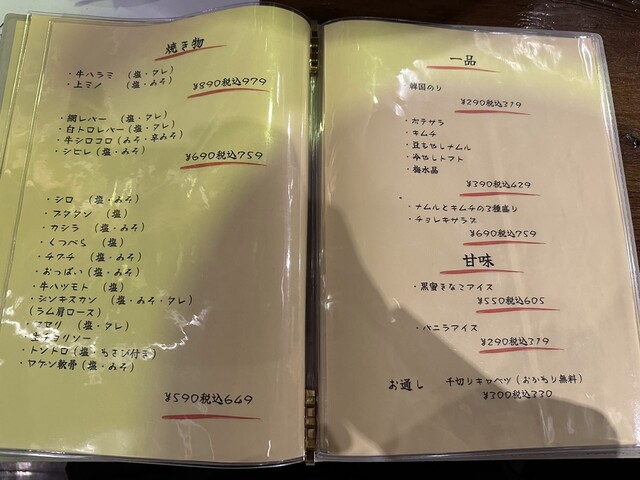 焼き物
・牛ハラミ (塩・タレ)
・上ミノ (塩・みそ)
¥890税込979
・網レバー (塩・タレ)
・白トロレバー (塩・タレ)
・牛シロコロ (みそ・辛みそ)
・シビレ (塩・みそ)
¥690税込759
・シロ (塩・みそ)
・カシラ (塩・みそ)
・くつべら (塩)
・チクチ (塩・みそ)
・おっぱい (塩・みそ)
・牛ハツモト (塩)
・ジンギスカン (塩・みそ・タレ)
(ラム肩ロース)
(塩・タレ)
・トントロ (塩・わさび付き)
・ヤゲン軟骨 (塩・みそ)
¥590税込649
一品
韓国のり
¥290税込319
・ポテサラ
・キムチ
・豆もやしナムル
・冷やしトマト
・梅水晶
¥390税込429
・ナムルとキムチの3種盛り
・チョレギサラダ
¥690税込759
甘味
・黒蜜きなこアイス
¥550税込605
・バニラアイス
¥290税込319
お通し 千切りキャベツ (おかわり無料)
¥300税込330